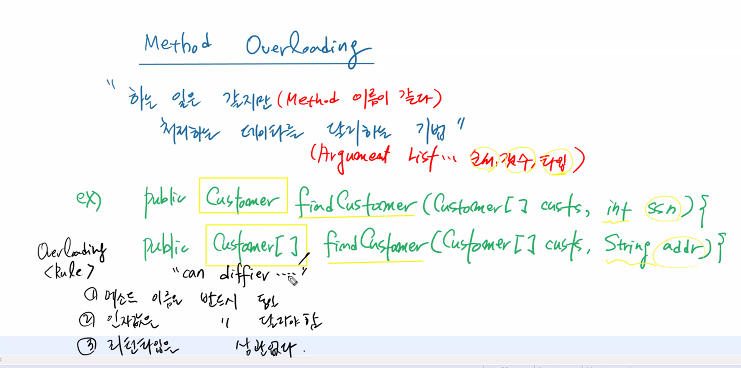 Method Overloading
" 하는 일은 같지만 (Method 이름이 같다)
처리하는 데이타를 달리하는 기법 "
(Argument List... 순서, 갯수, 타입)
ex) public Customer findCustomer (Customer[] custs, int ssn) {
public Customer[] findCustomer (Customer[] custs, String addr) {
Overloading
<Rule>
"can diffier ....."
① 메소드 이름은 반드시 동일
② 인자값은 " 달라야 함
③ 리턴타입은 상관없다.